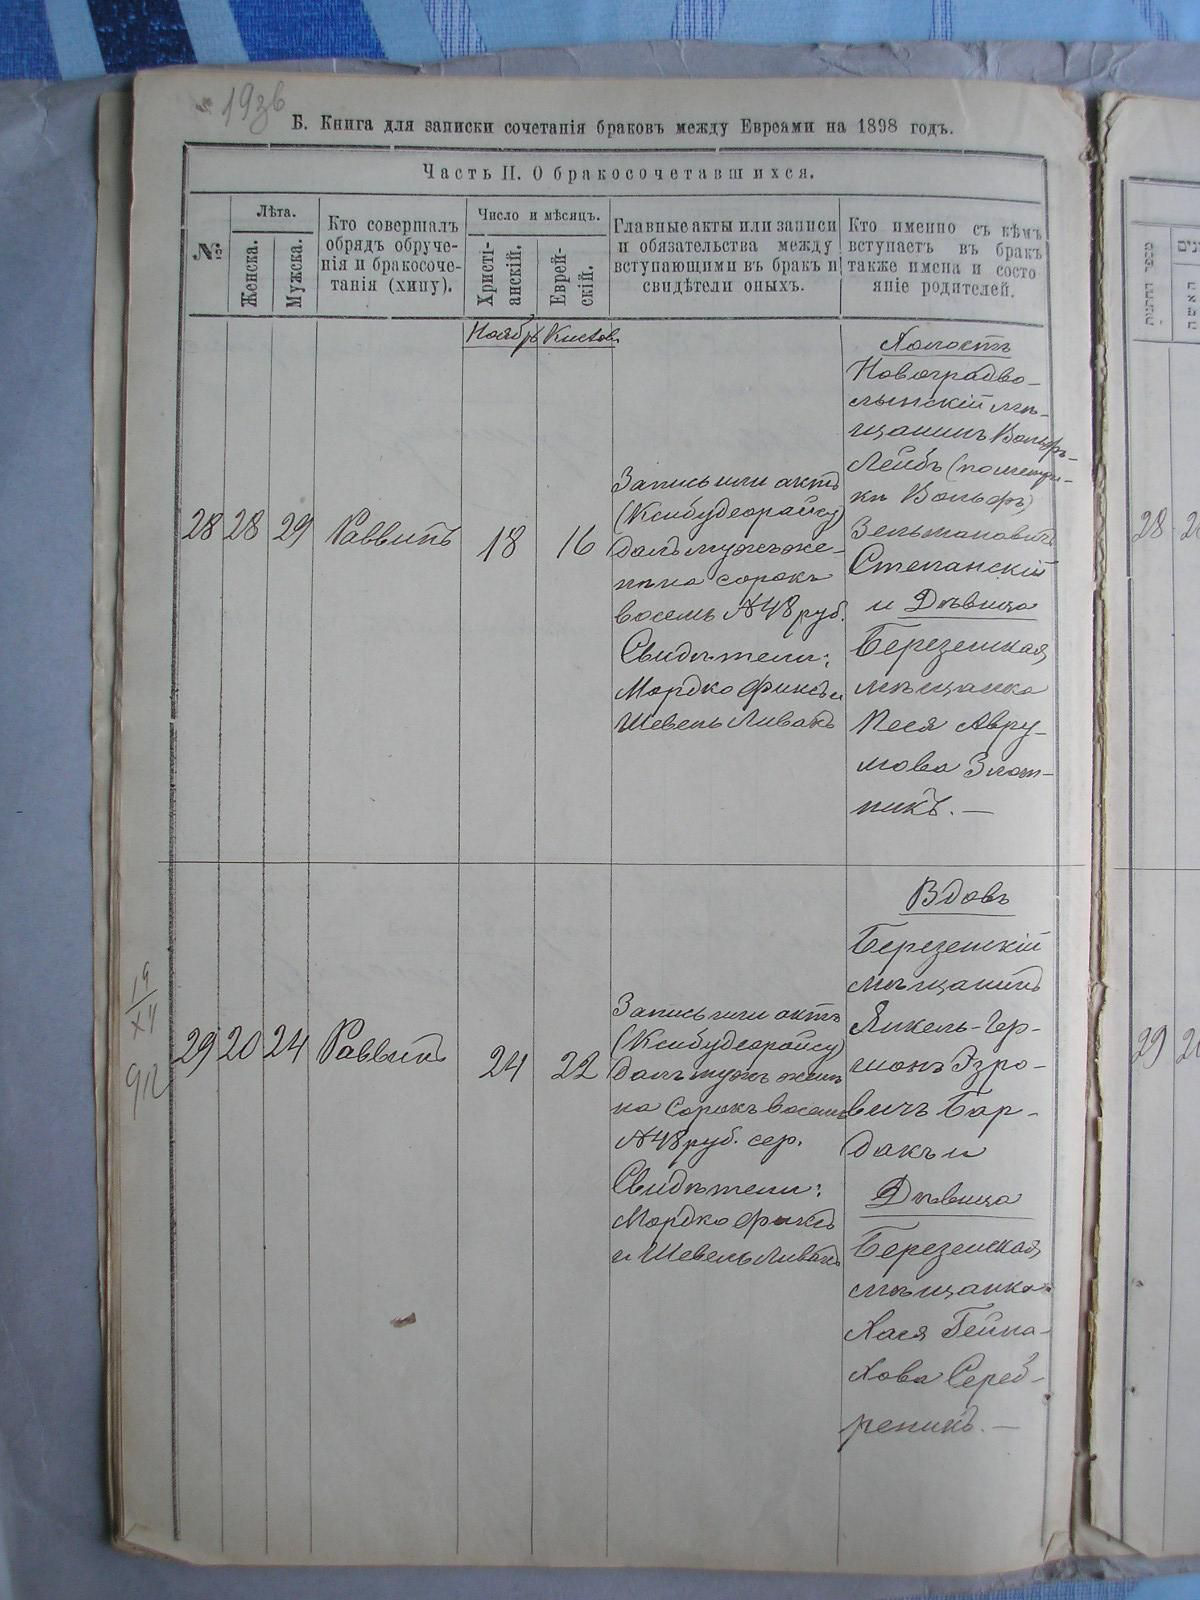 193в
Б. Книга для записки сочетанія браковъ между Евреами на 1898 годъ.
Часть II. О бракосочетавшихся.
№
Лѣта.
Женска.
Мужска.
Кто совершалъ
обрядъ обруче-
нія и бракосоче-
танія (хипу).
Число и мѣсяцъ.
Христі-
анскій.
Еврей-
скій.
Главные акты или записи
и обязательства между
вступающими въ бракъ и
свидѣтели оныхъ.
Кто именно съ кѣмъ
вступаетъ въ бракъ
также имена и состо
яніе родителей.
Ноябрь
Кислев
28
28
29
Раввинъ
18
16
Запись или актъ
(Ксибудеорайсу)
далъ мужъ же-
нѣ на сорокъ
восемь №48 руб.
Свидѣтели:
Мордко Финкъ и
Шевель Ливакъ
Холостъ
Новоградво-
лынскій мѣ-
щанинъ Вольфъ-
Лейбъ (по метри-
кѣ Вольфъ)
Зельмановичъ
Степанскій
и Дѣвица
Березенская
мѣщанка
Песя Авру-
мова Злот-
никъ. —
19
XII
912
29
20
24
Раввинъ
24
22
Запись или актъ
(Ксибудеорайсу)
далъ мужъ женѣ
на сорокъ восемь
№48 руб. сер.
Свидѣтели:
Мордко Финкъ
и Шевель Ливакъ
Вдовъ
Березенскій
мѣщанинъ
Янкель-Гер-
шонъ Эзро-
вичъ Бар-
дакъ и
Дѣвица
Березенская
мѣщанка
Хася Гейна-
хова Сереб-
реникъ. —
28
29